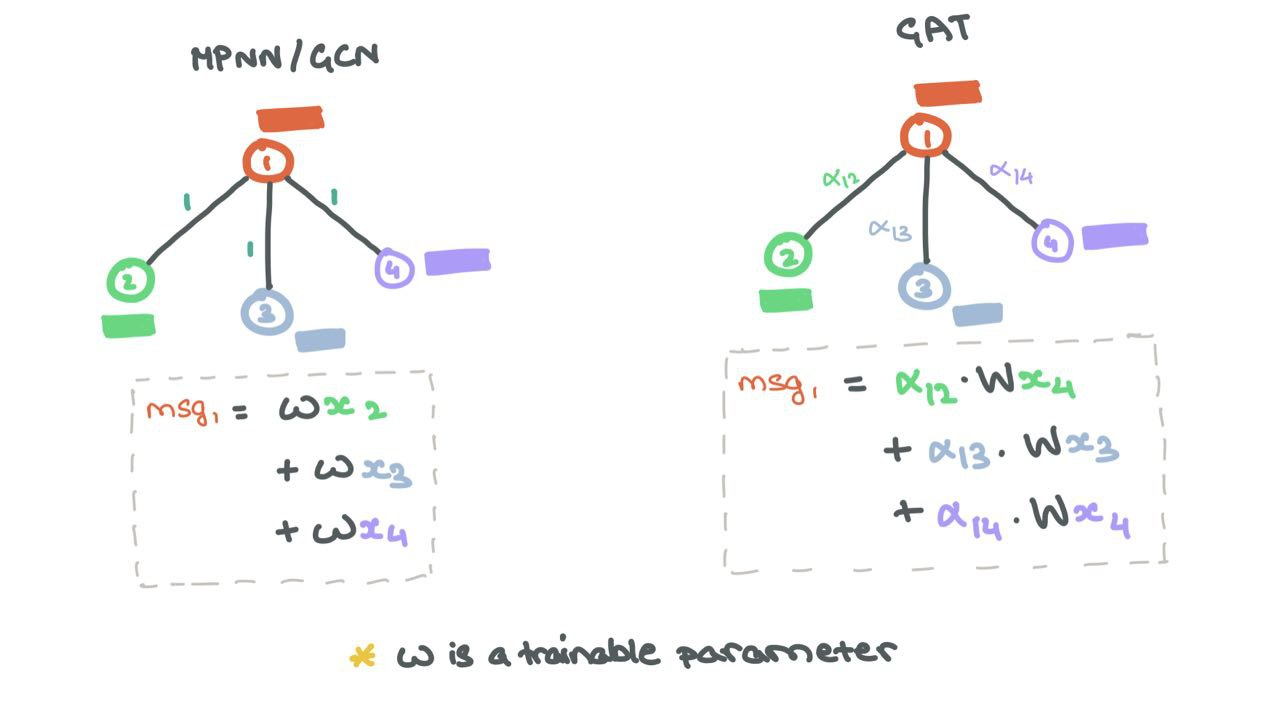 MPNN/GCN
1
1
1
1
2
3
4
msg₁ = ωx₂
+ ωx₃
+ ωx₄
GAT
1
α₁₂
α₁₃
α₁₄
2
3
4
msg₁ = α₁₂·Wx₄
+ α₁₃·Wx₃
+ α₁₄·Wx₄
* ω is a trainable parameter